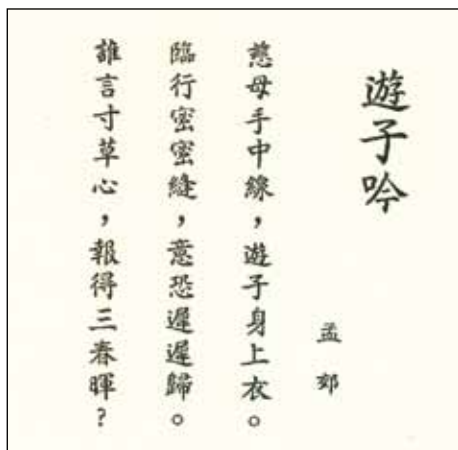 遊子吟
孟郊
慈母手中線，遊子身上衣。
臨行密密縫，意恐遲遲歸。
誰言寸草心，報得三春暉？